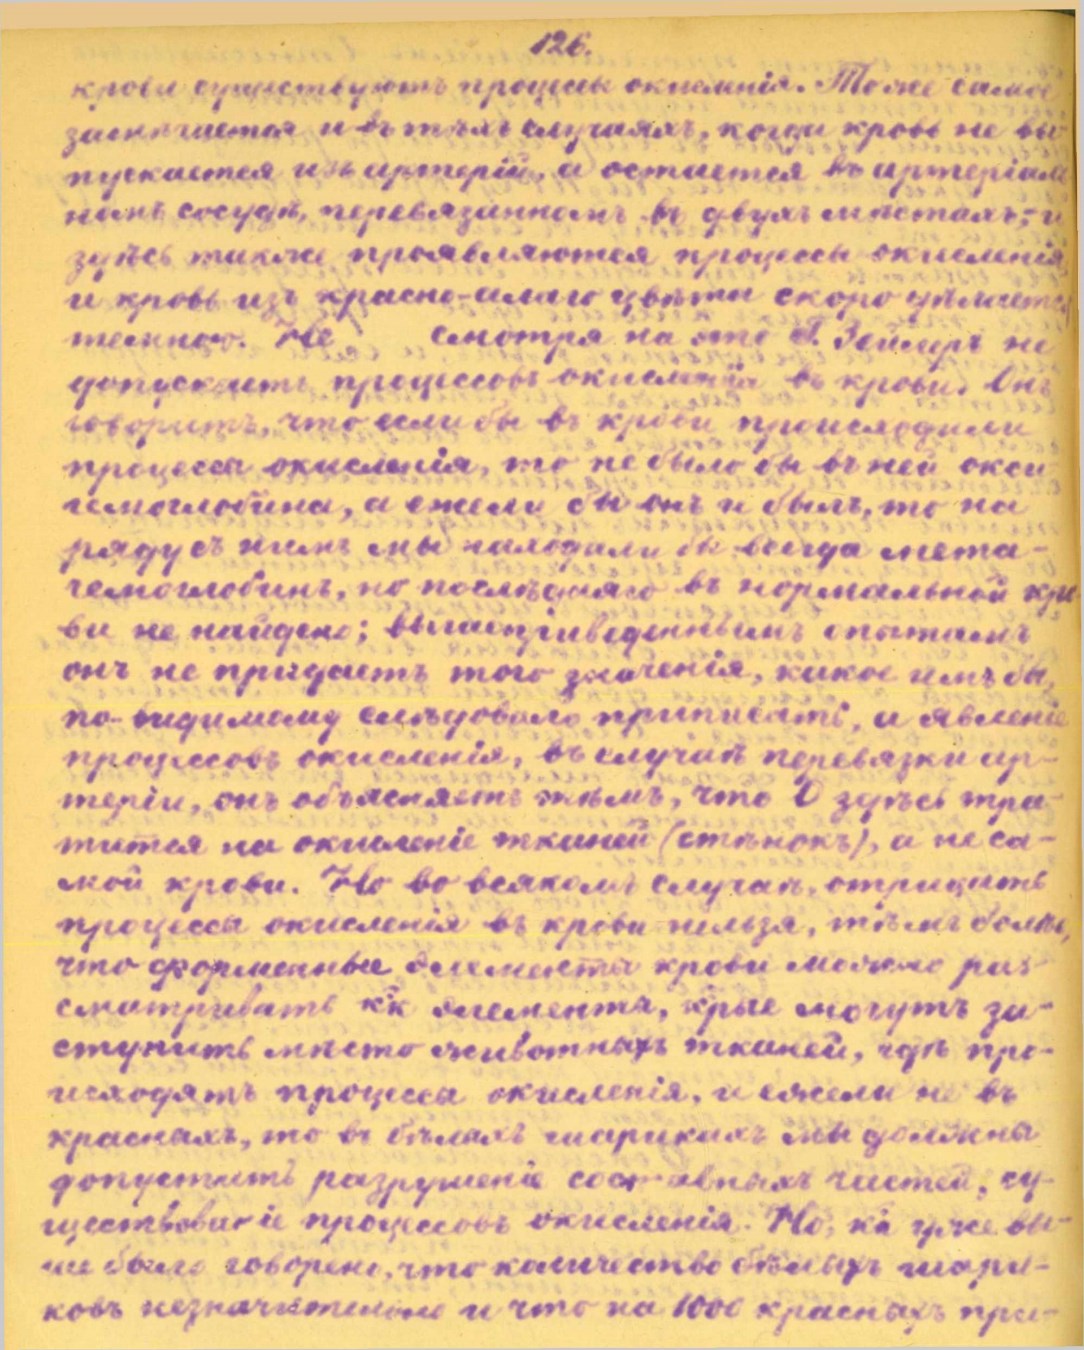 126.
крови существуютъ процессы окисленія. Тоже самое
замѣчается и въ тѣхъ случаяхъ, когда кровь не вы-
пускается изъ артерій, а остается въ артеріаль
номъ сосудѣ, перевязанномъ въ двухъ мѣстахъ; и
здѣсь также проявляются процессы окисленія,
и кровь изъ красно-алаго цвѣта скоро дѣлается
темною. Не смотря на это Г. Зейлеръ не
допускаетъ процессовъ окисленія въ крови. Онъ
говоритъ, что если бы въ крови происходили
процессы окисленія, то не было бы въ ней окси-
гемоглобина, а ежели бы онъ и былъ, то на
ряду съ нимъ мы находили бы всегда мета-
гемоглобинъ, но послѣдняго въ нормальной кро
ви не найдено; вышеприведеннымъ опытамъ
онъ не придаетъ того значенія, какое имъ бы,
по-видимому слѣдовало приписать, и явленіе
процессовъ окисленія, въ случаѣ перевязки ар-
теріи, онъ объясняетъ тѣмъ, что О здѣсь тра-
тится на окисленіе тканей (стѣнокъ), а не са-
мой крови. Но во всякомъ случаѣ, отрицать
процессы окисленія въ крови нельзя, тѣмъ болѣе,
что форменные элементы крови можно раз-
сматривать кк элементы, крые могутъ за-
ступить мѣсто животныхъ тканей, гдѣ про-
исходятъ процессы окисленія, и ежели не въ
красныхъ, то въ бѣлыхъ шарикахъ мы должны
допустить разрушеніе составныхъ частей, су-
ществованіе процессовъ окисленія. Но, кк уже вы-
ше было говорено, что количество бѣлыхъ шари-
ковъ незначительно и что на 1000 красныхъ при-